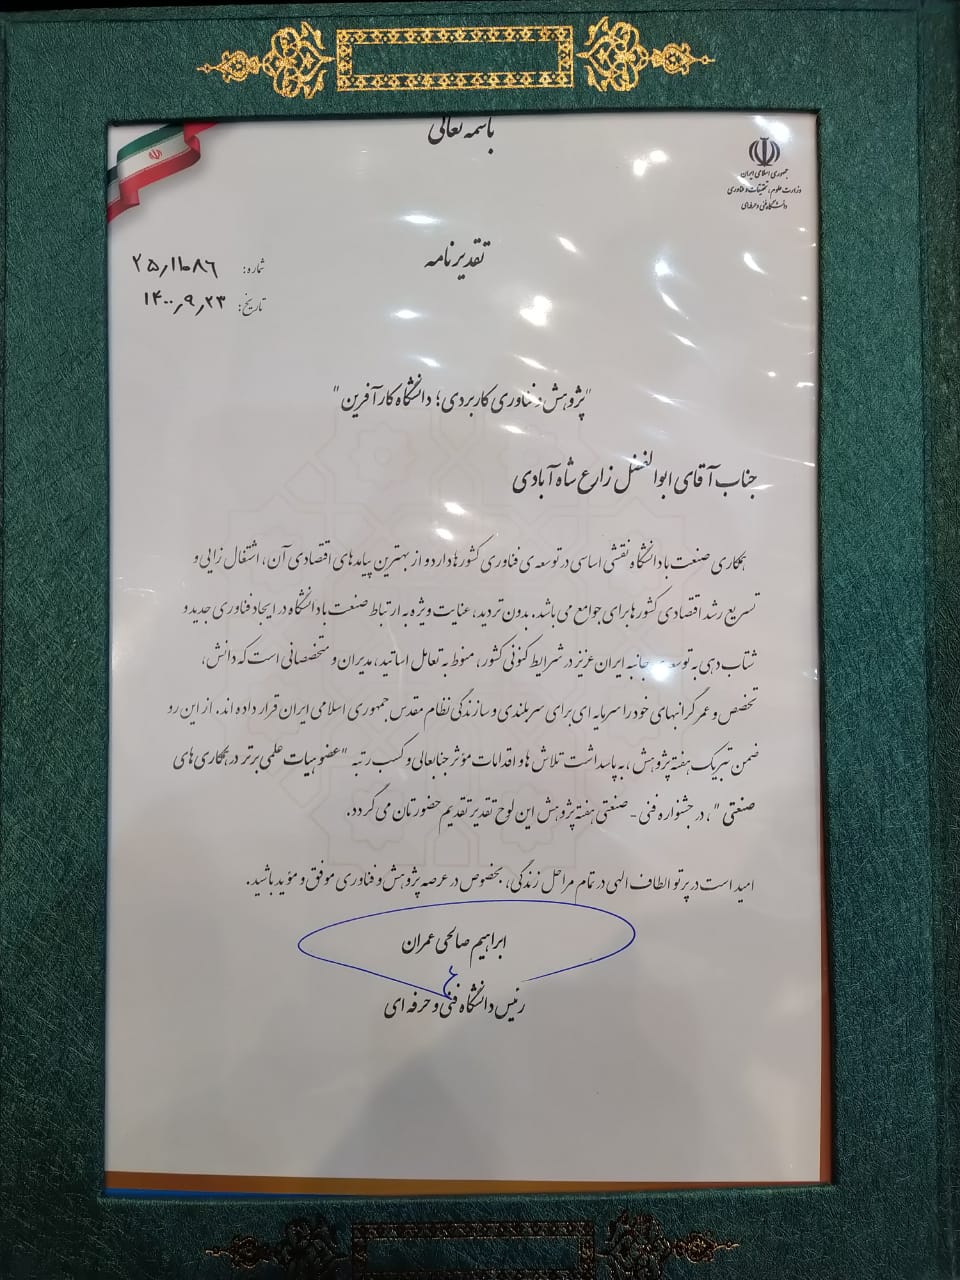 باسمه تعالی
جمهوری اسلامی ایران
وزارت علوم، تحقیقات و فناوری
دانشگاه فنی و حرفه‌ای
تقدیرنامه
شماره: ۲۵٫۱۱۰۸۶
تاریخ: ۱۴۰۰٫۹٫۲۳
"پژوهش و فناوری کاربردی؛ دانشگاه کارآفرین"
جناب آقای ابوالفضل زارع شاه آبادی
همکاری صنعت با دانشگاه نقشی اساسی در توسعه ی فناوری کشورها دارد و از بهترین پیامدهای اقتصادی آن، اشتغال زایی و
تسریع رشد اقتصادی کشورها برای جوامع می باشد. بدون تردید، عنایت ویژه به ارتباط صنعت با دانشگاه در ایجاد فناوری جدید و
شتاب دهی به توسعه جانبه ایران عزیز در شرایط کنونی کشور، منوط به تعامل اساتید، مدیران و متخصصانی است که دانش،
تخصص و عمر گرانبهای خود را سرمایه ای برای سربلندی و سازندگی نظام مقدس جمهوری اسلامی ایران قرار داده اند. از این رو
ضمن تبریک هفته پژوهش، به پاسداشت تلاش ها و اقدامات مؤثر جنابعالی و کسب رتبه "عضو هیات علمی برتر در همکاری های
صنعتی"، در جشنواره فنی - صنعتی هفته پژوهش این لوح تقدیر تقدیم حضورتان می گردد.
امید است در پرتو الطاف الهی در تمام مراحل زندگی، بخصوص در عرصه پژوهش و فناوری موفق و مؤید باشید.
ابراهیم صالحی عمران
رئیس دانشگاه فنی و حرفه ای